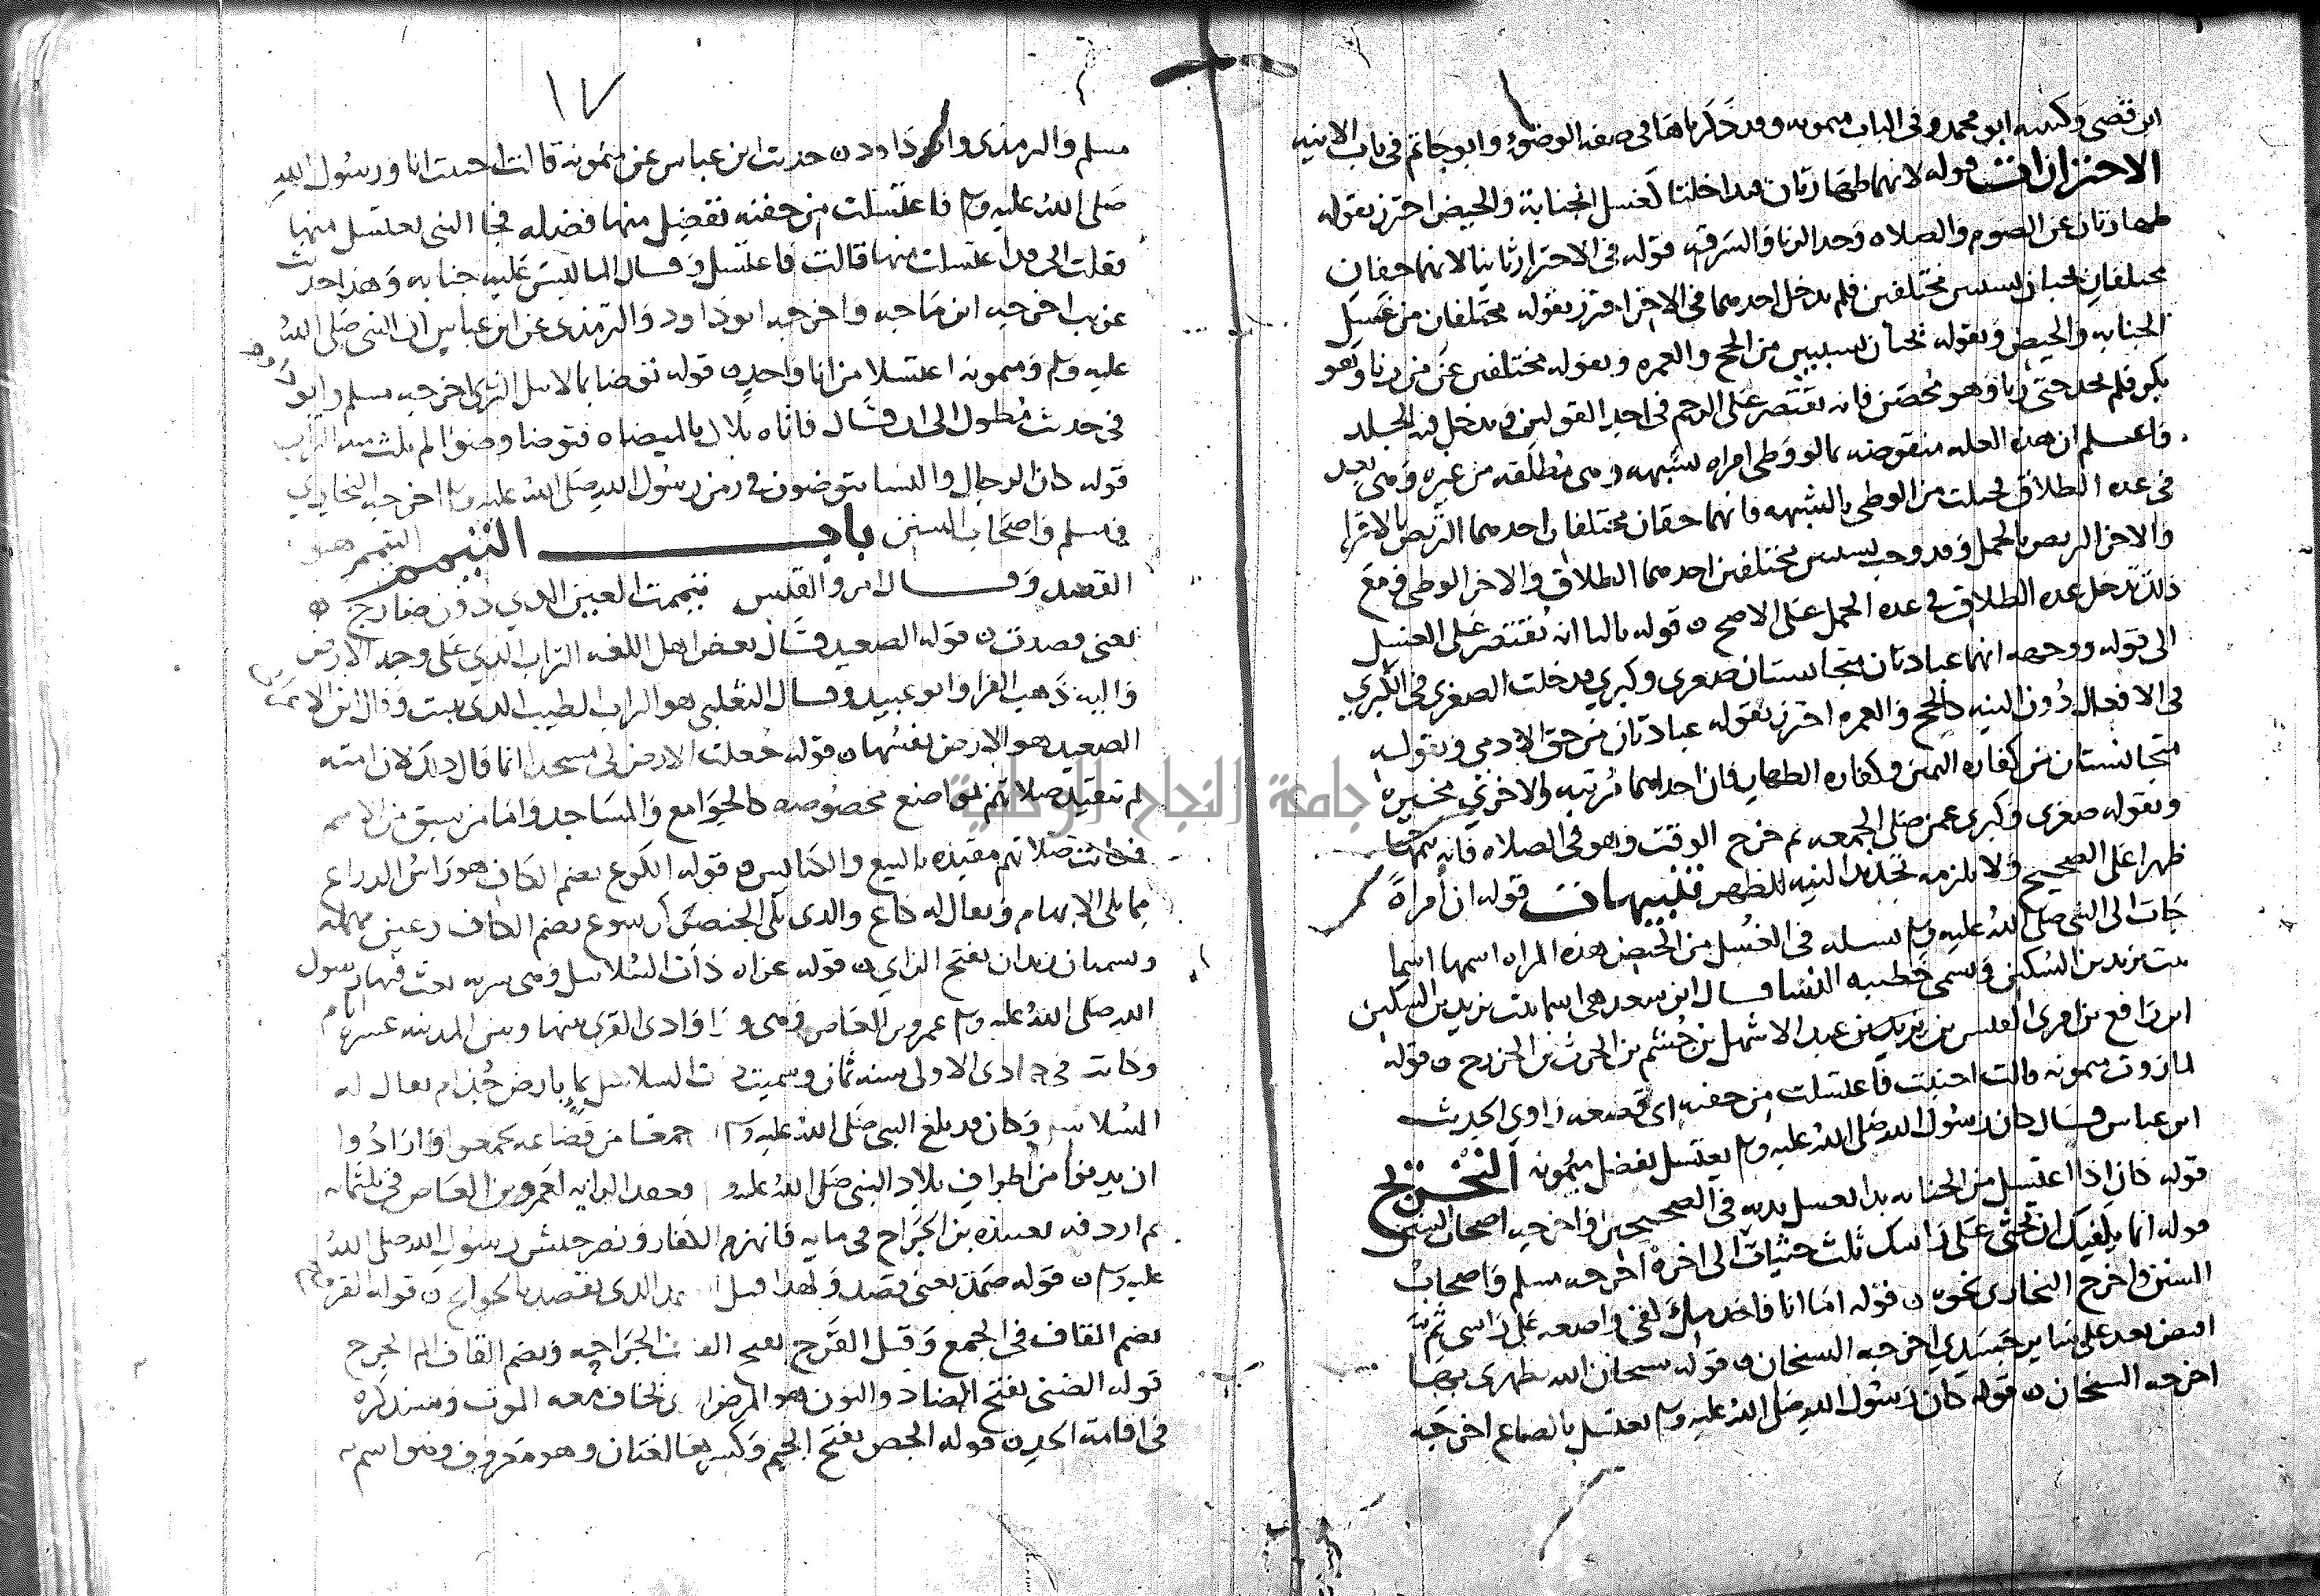 ابن قصي وكنيته ابو محمد وفي الباب ميمونه وقد ذكرناها في صفه الوضوء وابو حاتم في باب الانيه
الاحترازات قوله لانهما طهارتان فتداخلتا كغسل الجنابة والحيض احترز بقوله
طهارتان عن الصوم والصلاه وحد الزنا والسرقه قوله في الاحتراز ثانيا لانهما حقان
مختلفان يجبان بسببين مختلفين فلم يدخل احدهما في الاخر احترز بقوله مختلفان من غسل
الجنابه والحيض وبقوله يجبان بسببين من الحج والعمره وبقوله مختلفين عن من زنا وهو
بكر فلم يحد حتى زنا وهو محصن فانه يقتصر على الرجم في احد القولين ويدخل فيه الجلد
واعلم ان هذه العله منقوضه بما لو وطى امراه بشبهه وهي مطلقه من غيره وهي بعد
في عده الطلاق فحبلت من الوطى بالشبهه فانهما حقان مختلفان احدهما التربص بالاقرا
والاخر التربص بالحمل وقد وجب بسببين مختلفين احدهما الطلاق والاخر الوطى ومع
ذلك تدخل عده الطلاق في عده الحمل على الاصح ٥ قوله ثالثا انه يقتصر على الغسل
الى قوله ووجهه انهما عبادتان متجانستان صغرى وكبرى فدخلت الصغرى في الكبرى
في الافعال دون النيه كالحج والعمره احترز بقوله عبادتان من حق الادمي وبقوله
متجانستان من كفاره اليمين وكفاره الظهار فان احداهما مرتبه والاخرى مخيره
وبقوله صغرى وكبرى عمن صلى الجمعه ثم خرج الوقت وهو في الصلاه فانه يتمها
ظهرا على الصحيح ولا يلزمه تجديد النيه للظهر تنبيهات قوله ان امراة
جات الى النبي صلى الله عليه وسلم تسله في الغسل من الحيض هذه المراه اسمها اسما
بنت يزيد بن السكن وتسمى خطيبه النسا قال ابن سعد هي اسما بنت يزيد بن السكن
ابن رافع بن امرى القيس بن يزيد بن عبد الاشهل بن جشم بن الحرث بن الخزرج ٥ قوله
لما روت ميمونه قالت اجنبت فاغتسلت من جفنه اى قصعه راوي الحديث
ابن عباس قال كان رسول الله صلى الله عليه وسلم يغتسل بفضل ميمونه التخريج
قوله كان اذا اغتسل من الجنابه بدا بغسل يديه في الصحيحين واخرجه اصحاب السنن
قوله انما يكفيك ان تحثى على راسك ثلث حثيات الى اخره اخرجه مسلم واصحاب
السنن واخرج البخارى نحوه ٥ قوله اما انا فاخد ملء كفي واصعه على راسي ثم
افيض بعد على ساير جسدي اخرجه الشيخان ٥ قوله سبحان الله تطهرى بها
اخرجه الشيخان ٥ قوله كان رسول الله صلى الله عليه وسلم يغتسل بالصاع اخرجه
١٧
مسلم والترمذى وابو داود ٥ حديث ابن عباس عن ميمونة قالت اجنبت انا ورسول الله
صلى الله عليه وسلم فاغتسلت من جفنه ففضل منها فضله فجا النبى يغتسل منها
فقلت اني قد اغتسلت منها قالت فاغتسل وقال الما ليس عليه جنابه وهذا حديث
غريب اخرجه ابن ماجه واخرجه ابو داود والترمذى عن ابن عباس ان النبي صلى الله
عليه وسلم وميمونه اغتسلا من انا واحد ٥ قوله توضا بما لا يبل الثرى اخرجه مسلم وابو داود
في حديث مطول الى ان قال فاتاه بلال بالميضاه فتوضا وضوا لم يلث منه التراب
قوله كان الرجال والنسا يتوضون في زمن رسول الله صلى الله عليه وسلم اخرجه البخاري
ومسلم واصحاب السنن باب التيمم التيمم هو
القصد وقال امرو القيس تيممت العين التي دون ضارج ٥
يعني قصدت ٥ قوله الصعيد قال بعض اهل اللغه التراب الذي على وجه الارض
واليه ذهب الفرا وابو عبيد وقال الثعلبي هو التراب الطيب الذى ينبت وقال ابن الاعرابي
الصعيد هو الارض نفسها ٥ قوله جعلت الارض لي مسجدا انما قال ذلك لان امته
لم تتقيد صلاتهم بمواضع مخصوصه كالجوامع والمساجد واما من سبق من الامم
فكانت صلاتهم مقيده بالبيع والكنايس ٥ قوله الكوع بضم الكاف هو راس الذراع
مما يلي الابهام ويقال له كاع والذى يلي الخنصر كرسوع بضم الكاف وعين مهمله
ويسميان زندان بفتح الزاي ٥ قوله غزاه ذات السلاسل وهي سريه بعث فيها رسول
الله صلى الله عليه وسلم عمرو بن العاص وهي ورا وادى القرى بينها وبين المدينه عشره ايام
وكانت في جمادى الاولى سنه ثمان وسميت ذات السلاسل بما بارض جذام يقال له
السلاسل وكان قد بلغ النبي صلى الله عليه وسلم ان جمعا من قضاعه تجمعوا وارادوا
ان يدنوا من اطراف بلاد النبي صلى الله عليه وسلم فعقد الرايه لعمرو بن العاص في ثلثمايه
ثم اردفه بعبيده بن الجراح في مايه فانهزم الكفار ونصر جيش رسول الله صلى الله
عليه وسلم ٥ قوله صمد يعني قصد ولهذا قيل الصمد الذى يقصد بالحوايج ٥ قوله القروح
بضم القاف في الجمع وقيل القرح بفتح القاف الجراحه وبضم القاف الم الجرح
قوله الضنى بفتح الضاد والنون هو المرض الذي يخاف معه الموت وسنذكره
في اقامة الحد ٥ قوله الجص بفتح الجيم وكسرها لغتان وهو معروف وهو اسم